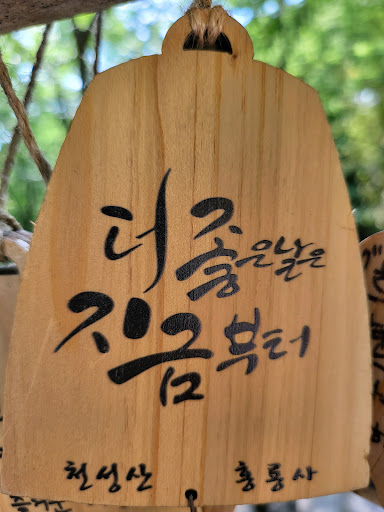 더 좋은날은
지금부터
천성산 홍룡사